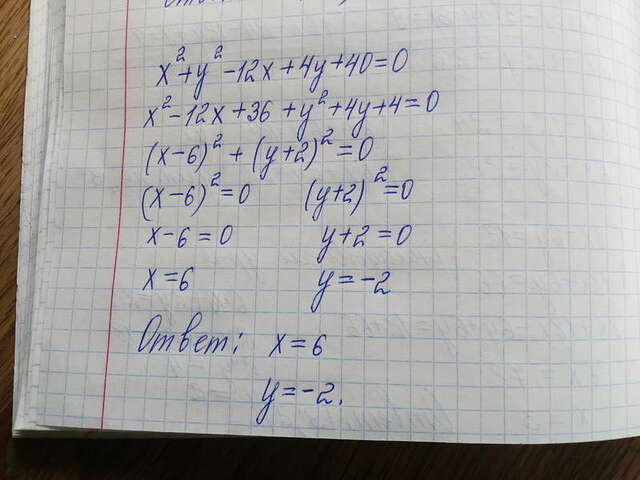 x²+y²-12x+4y+40=0
x²-12x+36+y²+4y+4=0
(x-6)²+(y+2)²=0
(x-6)²=0 (y+2)²=0
x-6=0 y+2=0
x=6 y=-2
Ответ: x=6
y=-2.